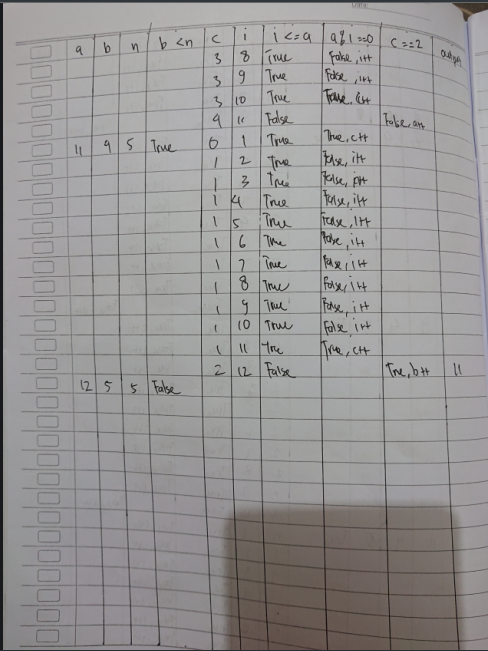 a b n b<n c i i<=a a%i==0 c==2 output
3 8 True False, i++
3 9 True False, i++
3 10 True True, c++
4 11 False False, a++
11 4 5 True 0 1 True True, c++
1 2 True False, i++
1 3 True False, i++
1 4 True False, i++
1 5 True False, i++
1 6 True False, i++
1 7 True False, i++
1 8 True False, i++
1 9 True False, i++
1 10 True False, i++
1 11 True True, c++
2 12 False True, b++ 11
12 5 5 False